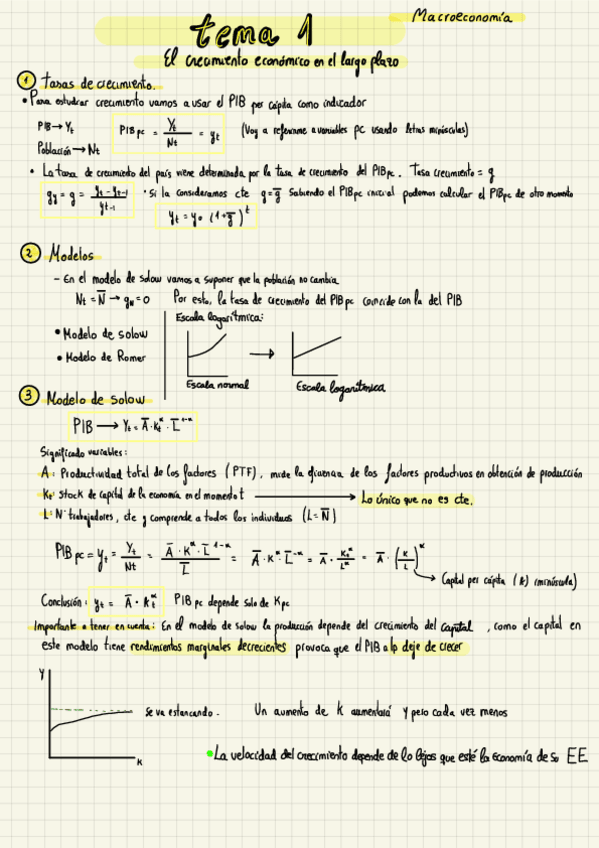 Macroeconomía
tema 1
El crecimiento económico en el largo plazo
1 Tasas de crecimiento.
• Para estudiar crecimiento vamos a usar el PIB per cápita como indicador
PIB → Yt
PIB pc = Yt / Nt = yt (Voy a referirme a variables pc usando letras minúsculas)
Población → Nt
• La tasa de crecimiento del país viene determinada por la tasa de crecimiento del PIBpc. Tasa crecimiento = g
gy = g = (yt - yt-1) / yt-1 • Si la consideramos cte g = ḡ Sabiendo el PIBpc inicial podemos calcular el PIBpc de otro momento
yt = y0 (1+ḡ)^t
2 Modelos
- En el modelo de solow vamos a suponer que la población no cambia
Nt = N̄ → gN = 0 Por esto, la tasa de crecimiento del PIBpc coincide con la del PIB
Escala logarítmica:
• Modelo de solow
• Modelo de Romer
Escala normal
Escala logarítmica
3 Modelo de Solow
PIB → Yt = Ā · Kt^α · L̄^1-α
Significado variables:
A: Productividad total de los factores (PTF), mide la eficiencia de los factores productivos en obtención de producción
Kt: stock de capital de la economía en el momento t → Lo único que no es cte.
L: Nº trabajadores, cte y comprende a todos los individuos (L = N̄)
PIB pc = yt = Yt / Nt = Ā · K^α · L̄^1-α / L̄ = Ā · K^α · L̄^-α = Ā · Kt^α / L^α = Ā · (K / L)^α
Capital per cápita (k) (minúscula)
Conclusión: yt = Ā · kt^α PIB pc depende solo de Kpc
Importante a tener en cuenta: En el modelo de solow la producción depende del crecimiento del capital, como el capital en
este modelo tiene rendimientos marginales decrecientes provoca que el PIB a lp deje de crecer
Y
Se va estancando.
Un aumento de K aumentará Y pero cada vez menos
K
• La velocidad del crecimiento depende de lo lejos que esté la economía de su EE